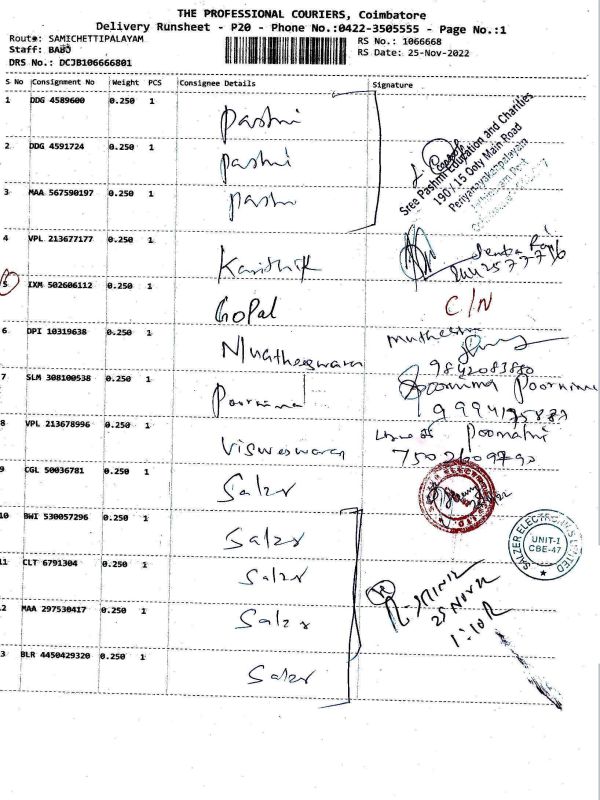 THE PROFESSIONAL COURIERS, Coimbatore
Delivery Runsheet - P20 - Phone No.:0422-3505555 - Page No.:1
Route: SAMICHETTIPALAYAM
RS No.: 1066668
Staff: BABU
RS Date: 25-Nov-2022
DRS No.: DCJB106666801
S No Consignment No Weight PCS Consignee Details Signature
1 DDG 4589600 0.250 1 Pashni
2 DDG 4591724 0.250 1 Pashni
3 MAA 567590197 0.250 1 Pashni
Sree Pashni Education and Charities
190/15 Ooty Main Road
Periyanaickenpalayam
4 VPL 213677177 0.250 1 Karithik
5 IXM 502606112 0.250 1 Gopal C/N
6 DPI 10319638 0.250 1 Muatheeswaran
9842083880
7 SLM 308100538 0.250 1 Poornima Poornima
8 VPL 213678996 0.250 1 Visweswaran
7502609790
9 CGL 50036781 0.250 1 Salzr
10 BWI 530057296 0.250 1 Salzr
SALZER ELECTRONICS LIMITED
UNIT-1
CBE-47
11 CLT 6791304 0.250 1 Salzr
2 MAA 297530417 0.250 1 Salzr
25 NOV 22
1:10
3 BLR 4450429320 0.250 1 Salzr